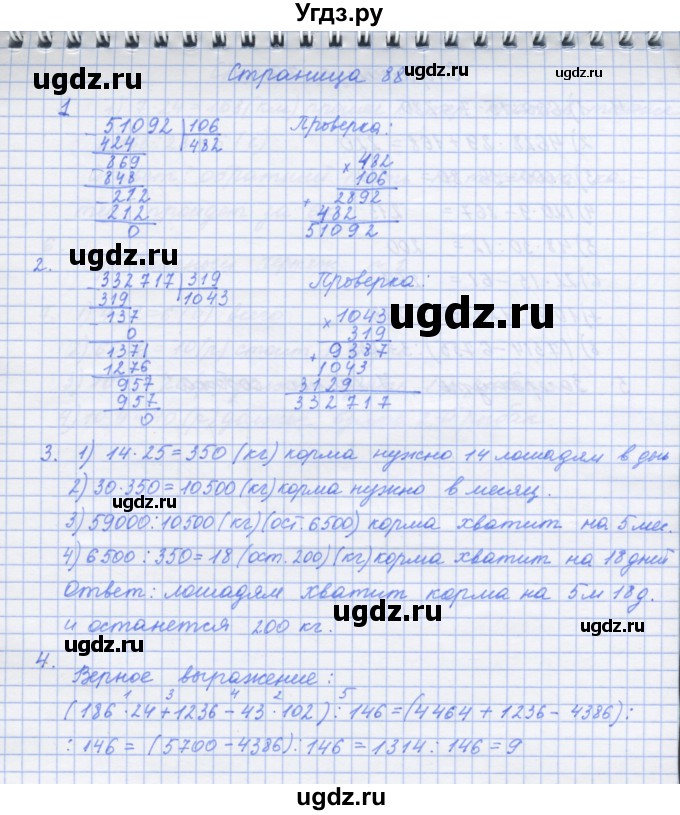 Угдз.ру
Страница 88
ugdz.ru
ugdz.ru
ugdz.ru
1
51092 | 106
424 | 482
869
848
212
212
0
Проверка:
× 482
106
+ 2892
482
51092
2.
332717 | 319
319 | 1043
137
0
1371
1276
957
957
0
Проверка:
× 1043
319
+ 9387
1043
3129
332717
ugdz.ru
ugdz.ru
ugdz.ru
3. 1) 14·25=350 (кг) корма нужно 14 лошадям в день
2) 30·350=10500 (кг) корма нужно в месяц.
3) 59000:10500 (кг) (ост. 6500) корма хватит на 5 мес.
4) 6500:350=18 (ост. 200) (кг) корма хватит на 18 дней
Ответ: лошадям хватит корма на 5 м 18 д.
и останется 200 кг.
ugdz.ru
ugdz.ru
ugdz.ru
4. Верное выражение:
1 3 4 2 5
(186·24+1236-43·102):146=(4464+1236-4386):
:146=(5700-4386):146=1314:146=9
ugdz.ru
ugdz.ru